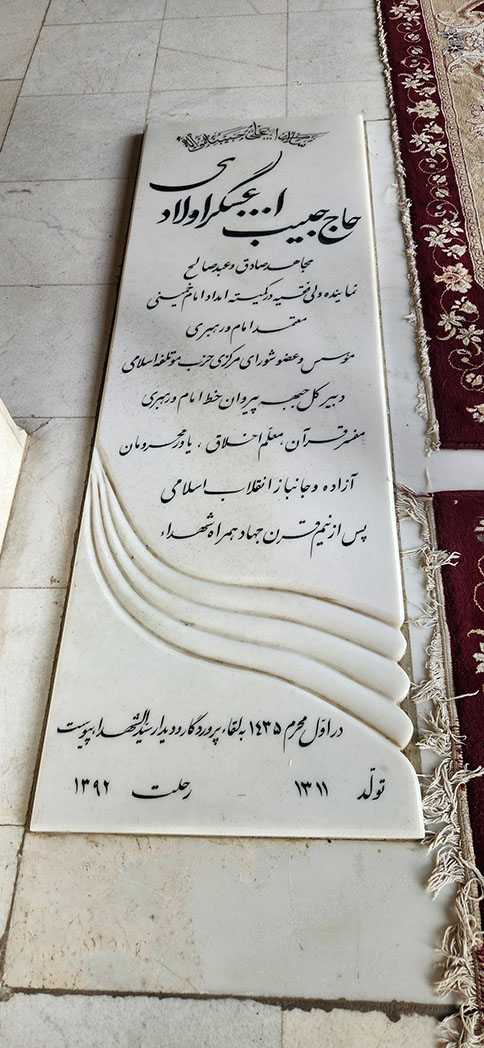 حاج حبیب ا... عسگراولادی
مجاهد صادق و عبد صالح
نماینده ولی فقیه در کمیته امداد امام خمینی
معتمد امام و رهبری
مؤسس و عضو شورای مرکزی حزب موتلفه اسلامی
دبیر کل جبهه پیروان خط امام و رهبری
مفسر قرآن، معلم اخلاق، یاور محرومان
آزاده و جانباز انقلاب اسلامی
پس از نیم قرن جهاد همراه شهداء
در اوّل محرم ۱۴۳۵ به لقاء پروردگار و دیدار سیدالشهداء پیوست
تولّد ۱۳۱۱ رحلت ۱۳۹۲